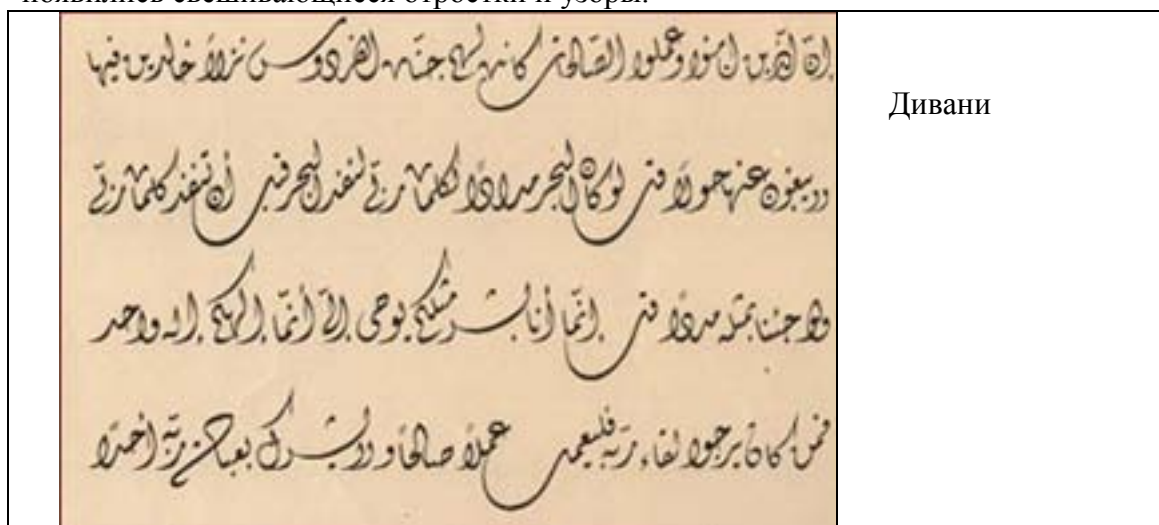 появились свешивающиеся отростки и узоры.
إنّ الّذين آمنوا وعملوا الصّالحات كانت لهم جنّات الفردوس نزلاً خالدين فيها
لا يبغون عنها حولاً قل لو كان البحر مدادًا لكلمات ربّي لنفد البحر قبل أن تنفد كلمات ربّي
ولو جئنا بمثله مددًا قل إنّما أنا بشر مثلكم يوحى إليّ أنّما إلهكم إله واحد
فمن كان يرجوا لقاء ربّه فليعمل عملاً صالحًا ولا يشرك بعبادة ربّه أحدًا
Дивани